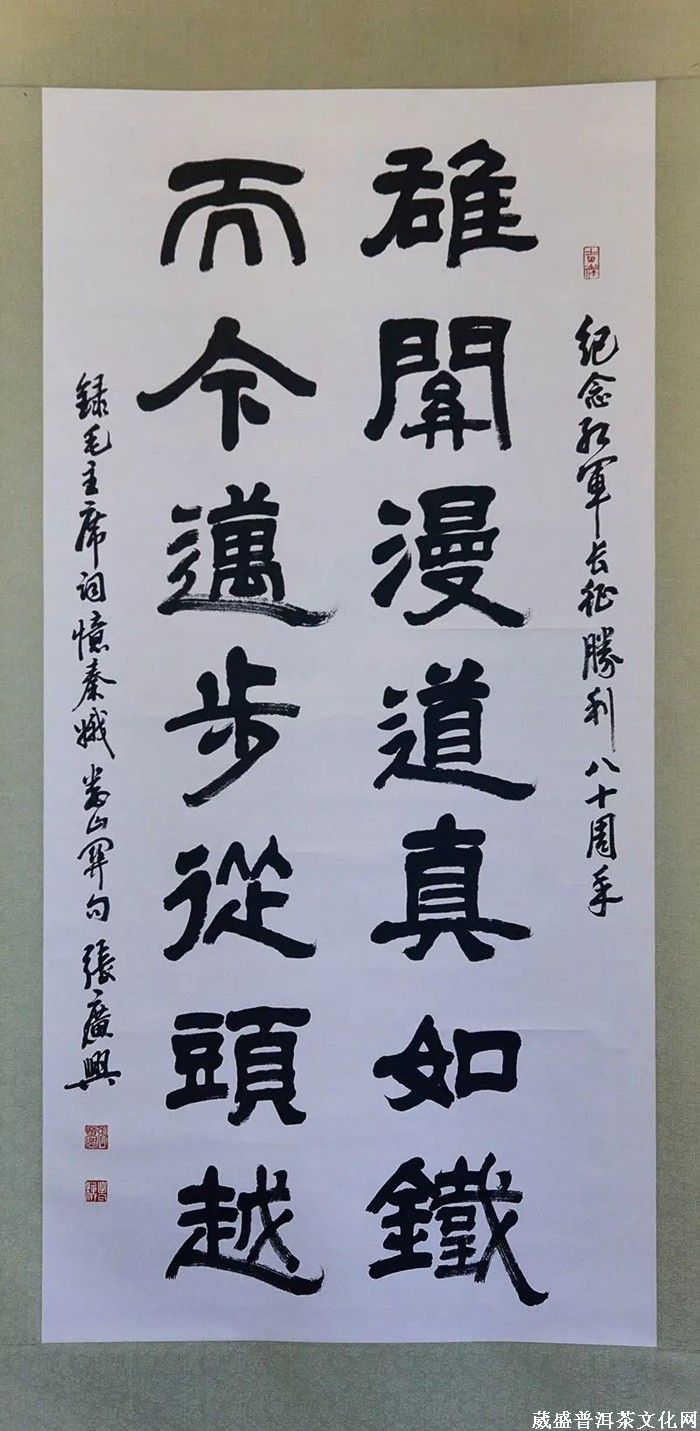 紀念紅軍长征勝利八十周年
雄關漫道真如鐵
而今邁步從頭越
録毛主席词憶秦娥娄山関句 張廣興
葳盛普洱茶文化网